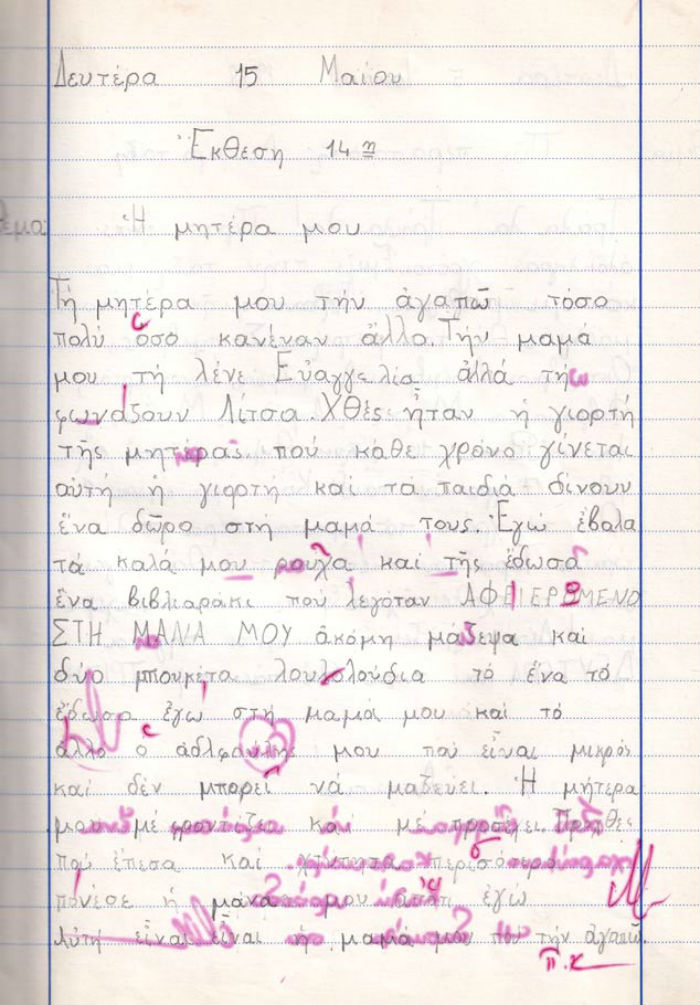 Δευτέρα 15 Μαίου
Ἔκθεση 14η
Θέμα: Ἡ μητέρα μου
Τή μητέρα μου τήν ἀγαπῶ τόσο
πολύ ὅσο κανέναν ἄλλο. Τήν μαμά
μου τή λένε Εὐαγγελία ἀλλά τή
φωνάζουν Λίτσα. Χθές ἦταν ἡ γιορτή
τῆς μητέρας πού κάθε χρόνο γίνεται
αὐτή ἡ γιορτή καί τά παιδιά δίνουν
ἕνα δῶρο στή μαμά τους. Ἐγώ ἔβαλα
τά καλά μου ροῦχα καί τῆς ἔδωσα
ἕνα βιβλιαράκι πού λεγόταν ΑΦΙΕΡΩΜΕΝΟ
ΣΤΗ ΜΑΝΑ ΜΟΥ ἀκόμη μάζεψα καί
δύο μπουκέτα λουλολούδια τό ἕνα τό
ἔδωσα ἐγώ στή μαμά μου καί τό
ἄλλο ὁ μου πού εἶναι μικρός
καί δέν μπορεῖ νά μαζεύει. Ἡ μητέρα
μου μέ φροντίζει καί μέ προσέχει. Προχθές
πού ἔπεσα καί χτύπησα περισσότερο
πόνεσε ἡ μάνα μου ἐγώ
Αὐτή εἶναι εἶναι ἡ μαμά μου πού τήν ἀγαπῶ.
π.κ